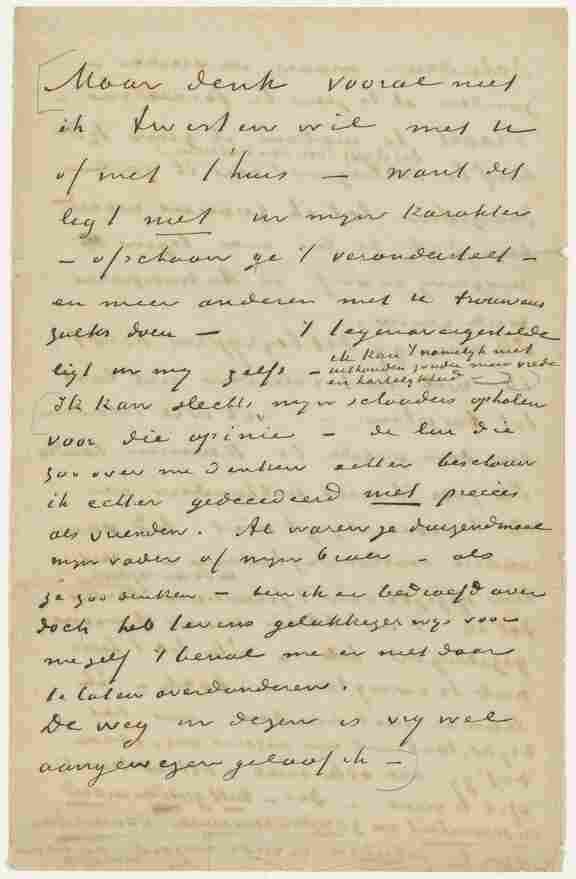 Maar denk vooral niet
ik twisten wil met u
of met t huis – want dit
ligt niet in mijn karakter
– ofschoon ge 't veronderstelt –
en meer anderen met u trouwens
zulks doen – 't tegenovergestelde
ligt in my zelfs – ik kan 't namelijk niet
uithouden zonder meer vrede
en hartelykheid
Ik kan slechts myn schouders ophalen
voor die opinie – de lui die
zoo over me denken echter beschouw
ik echter gedecideerd niet precies
als vrienden. Al waren ze duizendmaal
myn vader of myn broer – als
ze zoo denken – ben ik er bedroefd over
doch heb tevens gelukkiger wys voor
mezelf 't benul me er niet door
te laten overdonderen.
De weg in dezen is vry wel
aangewezen geloof ik –